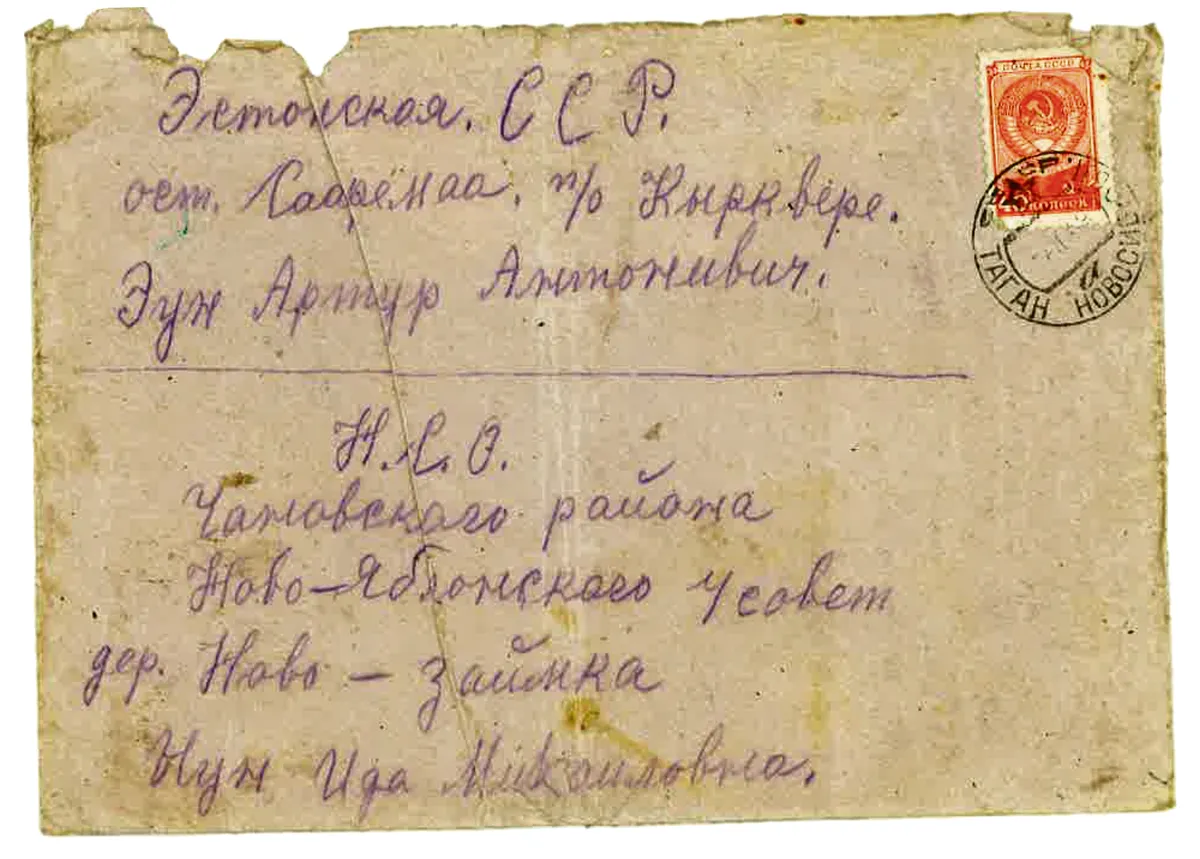 Эстонская. С С Р.
ост. Сааремаа. п/о Кырквере.
Эун Артур Антонивич.
Н.С.О.
Чановского района
Ново-Яблонского Чсовет
дер. Ново - Займка
Иун Ида Михаиловна.
ПОЧТА СССР
40 КОПЕЕК
ТАГАН НОВОСИБ